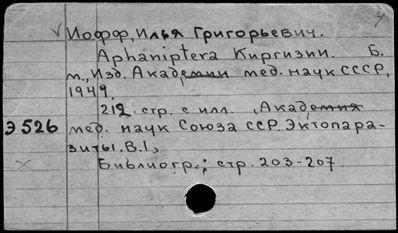 Иофф, Илья Григорьевич.
Aphaniptera Киргизии. Б.
м., Изд. Академии мед. наук СССР,
1949.
212 стр. с илл. (Академия
Э526 мед. наук Союза ССР. Эктопара-
зиты. В.1),
Библиогр.: стр. 203-207.